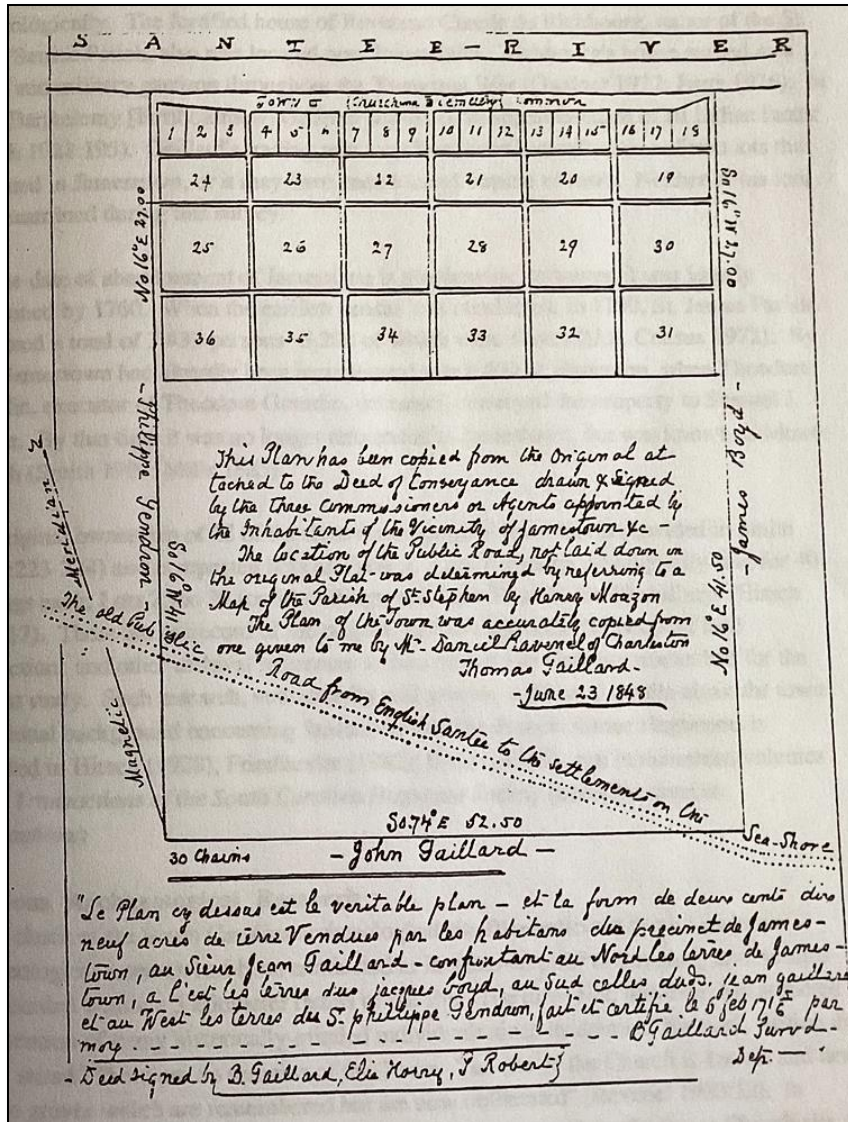 SANTEE-RIVER
Town & Church and Cemetery Common
1 2 3 4 5 6 7 8 9 10 11 12 13 14 15 16 17 18
24 23 22 21 20 19
25 26 27 28 29 30
36 35 34 33 32 31
No 16° E 27.00
So 16° W 27.00
- Philippe Gendron -
So 16° W 41.50
No 16° E 41.50
- James Boyd -
Meridian
Magnetic
This Plan has been copied from the Original at
tached to the Deed of Conveyance drawn & signed
by the Three Commissioners or Agents appointed by
the Inhabitants of the Vicinity of Jamestown &c -
The location of the Public Road, not laid down in
the original Plat - was determined by referring to a
Map of the Parish of St. Stephen by Henry Mouzon
The Plan of the Town was accurately copied from
one given to me by Mr. Daniel Ravenel of Charleston
Thomas Gaillard.
- June 23 1848
The old Public Road from English Santee to the settlements on the Sea-Shore
So. 74° E 52.50
30 Chains
- John Gaillard -
"Le Plan cy dessus est le veritable plan - et la form de deux cents dix
neuf acres de terre Vendues par les habitans du precinct de James-
town, au Sieur Jean Gaillard - confrontant au Nord les terres de James-
town, a l'est les terres dus jacques boyd, au Sud calles dud. jean gaillard
et au West les terres du Sr. philippe Gendron, fait et certifie le 6 feb 171 par
moy - - - B Gaillard Survd -
Dep.
- Deed signed by B. Gaillard, Elie Horry, P Robert}